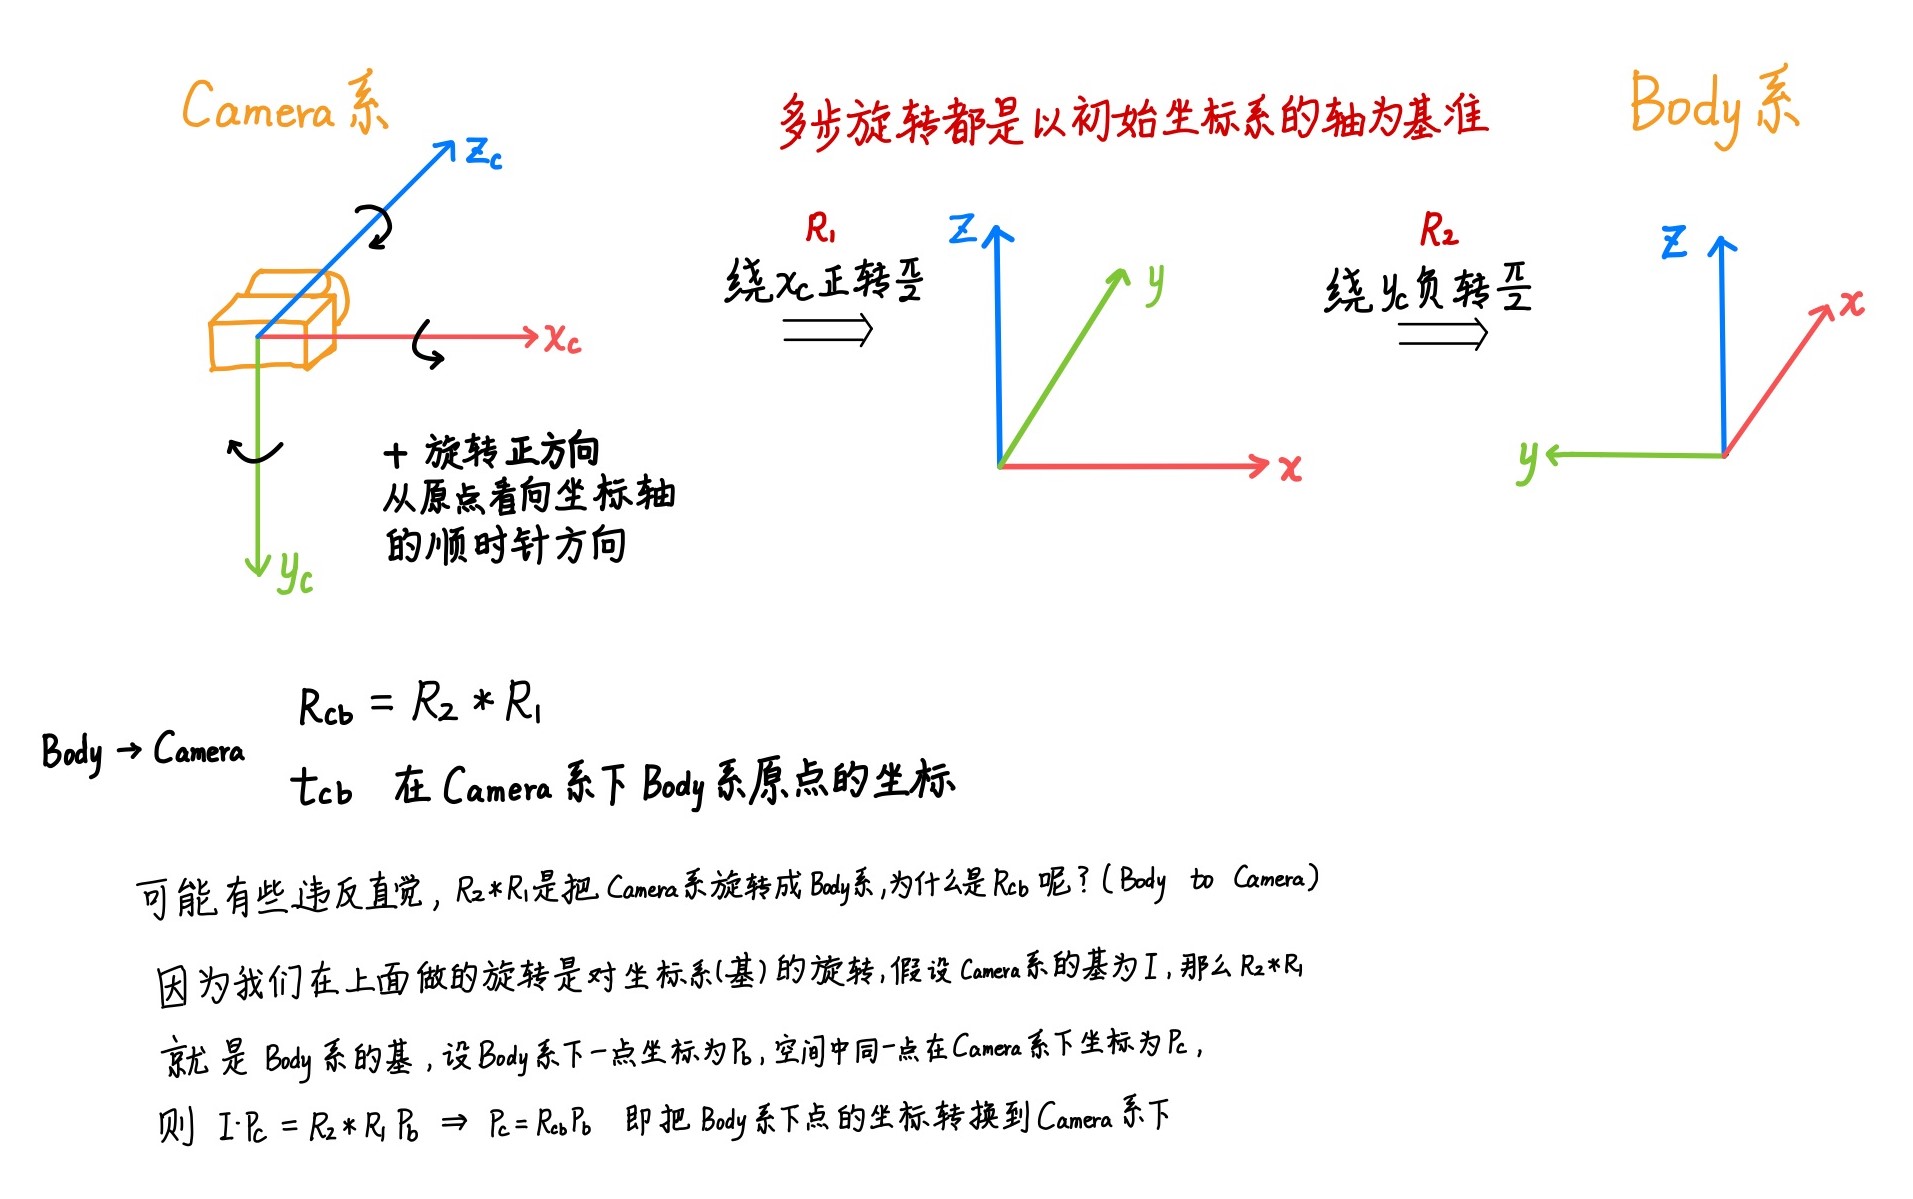 Camera系
多步旋转都是以初始坐标系的轴为基准
Body系
zc
xc
yc
+ 旋转正方向
从原点看向坐标轴
的顺时针方向
R1
绕xc正转π/2
z
y
x
R2
绕yc负转π/2
z
x
y
Rcb = R2 * R1
Body → Camera
tcb 在Camera系下Body系原点的坐标
可能有些违反直觉, R2*R1是把Camera系旋转成Body系,为什么是Rcb呢?(Body to Camera)
因为我们在上面做的旋转是对坐标系(基)的旋转,假设Camera系的基为I,那么R2*R1
就是Body系的基,设Body系下一点坐标为Pb,空间中同一点在Camera系下坐标为Pc,
则 I·Pc = R2*R1 Pb ⇒ Pc=RcbPb 即把Body系下点的坐标转换到Camera系下